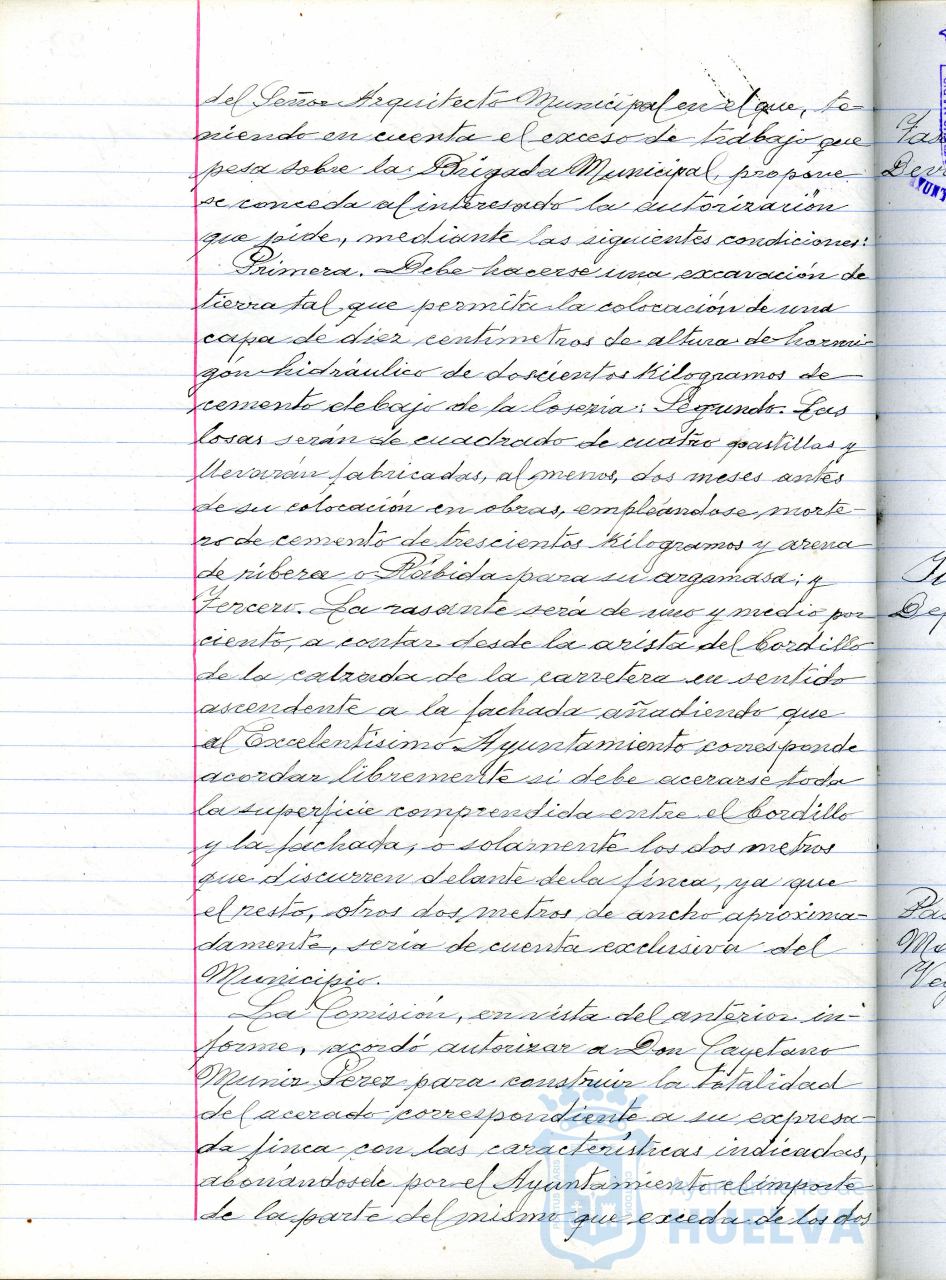 del Señor Arquitecto Municipal en el que, te-
niendo en cuenta el exceso de trabajo que
pesa sobre la Brigada Municipal, propone
se conceda al interesado la autorización
que pide, mediante las siguientes condiciones:
Primera. Debe hacerse una excavación de
tierra tal que permita la colocación de una
capa de diez centímetros de altura de hormi-
gón hidráulico de doscientos kilogramos de
cemento debajo de la losería: Segundo. Las
losas serán de cuadrado de cuatro pastillas y
llevarán fabricadas, al menos, dos meses antes
de su colocación en obras, empléandose morte-
ro de cemento de trescientos kilogramos y arena
de ribera o Rábida para su argamasa; y
Tercero. La rasante será de uno y medio por
ciento, a contar desde la arista del Cordillo
de la calzada de la carretera en sentido
ascendente a la fachada añadiendo que
al Excelentísimo Ayuntamiento corresponde
acordar libremente si debe acerarse toda
la superficie comprendida entre el Cordillo
y la fachada, o solamente los dos metros
que discurren delante de la finca, ya que
el resto, otros dos metros de ancho aproxima-
damente, sería de cuenta exclusiva del
Municipio.
La Comisión, en vista del anterior in-
forme, acordó autorizar a Don Cayetano
Muniz Pérez para construir la totalidad
del acerado correspondiente a su expresa-
da finca con las características indicadas,
abonándosde por el Ayuntamiento el importe
de la parte del mismo que exceda de los dos
Ayuntamiento de
HUELVA